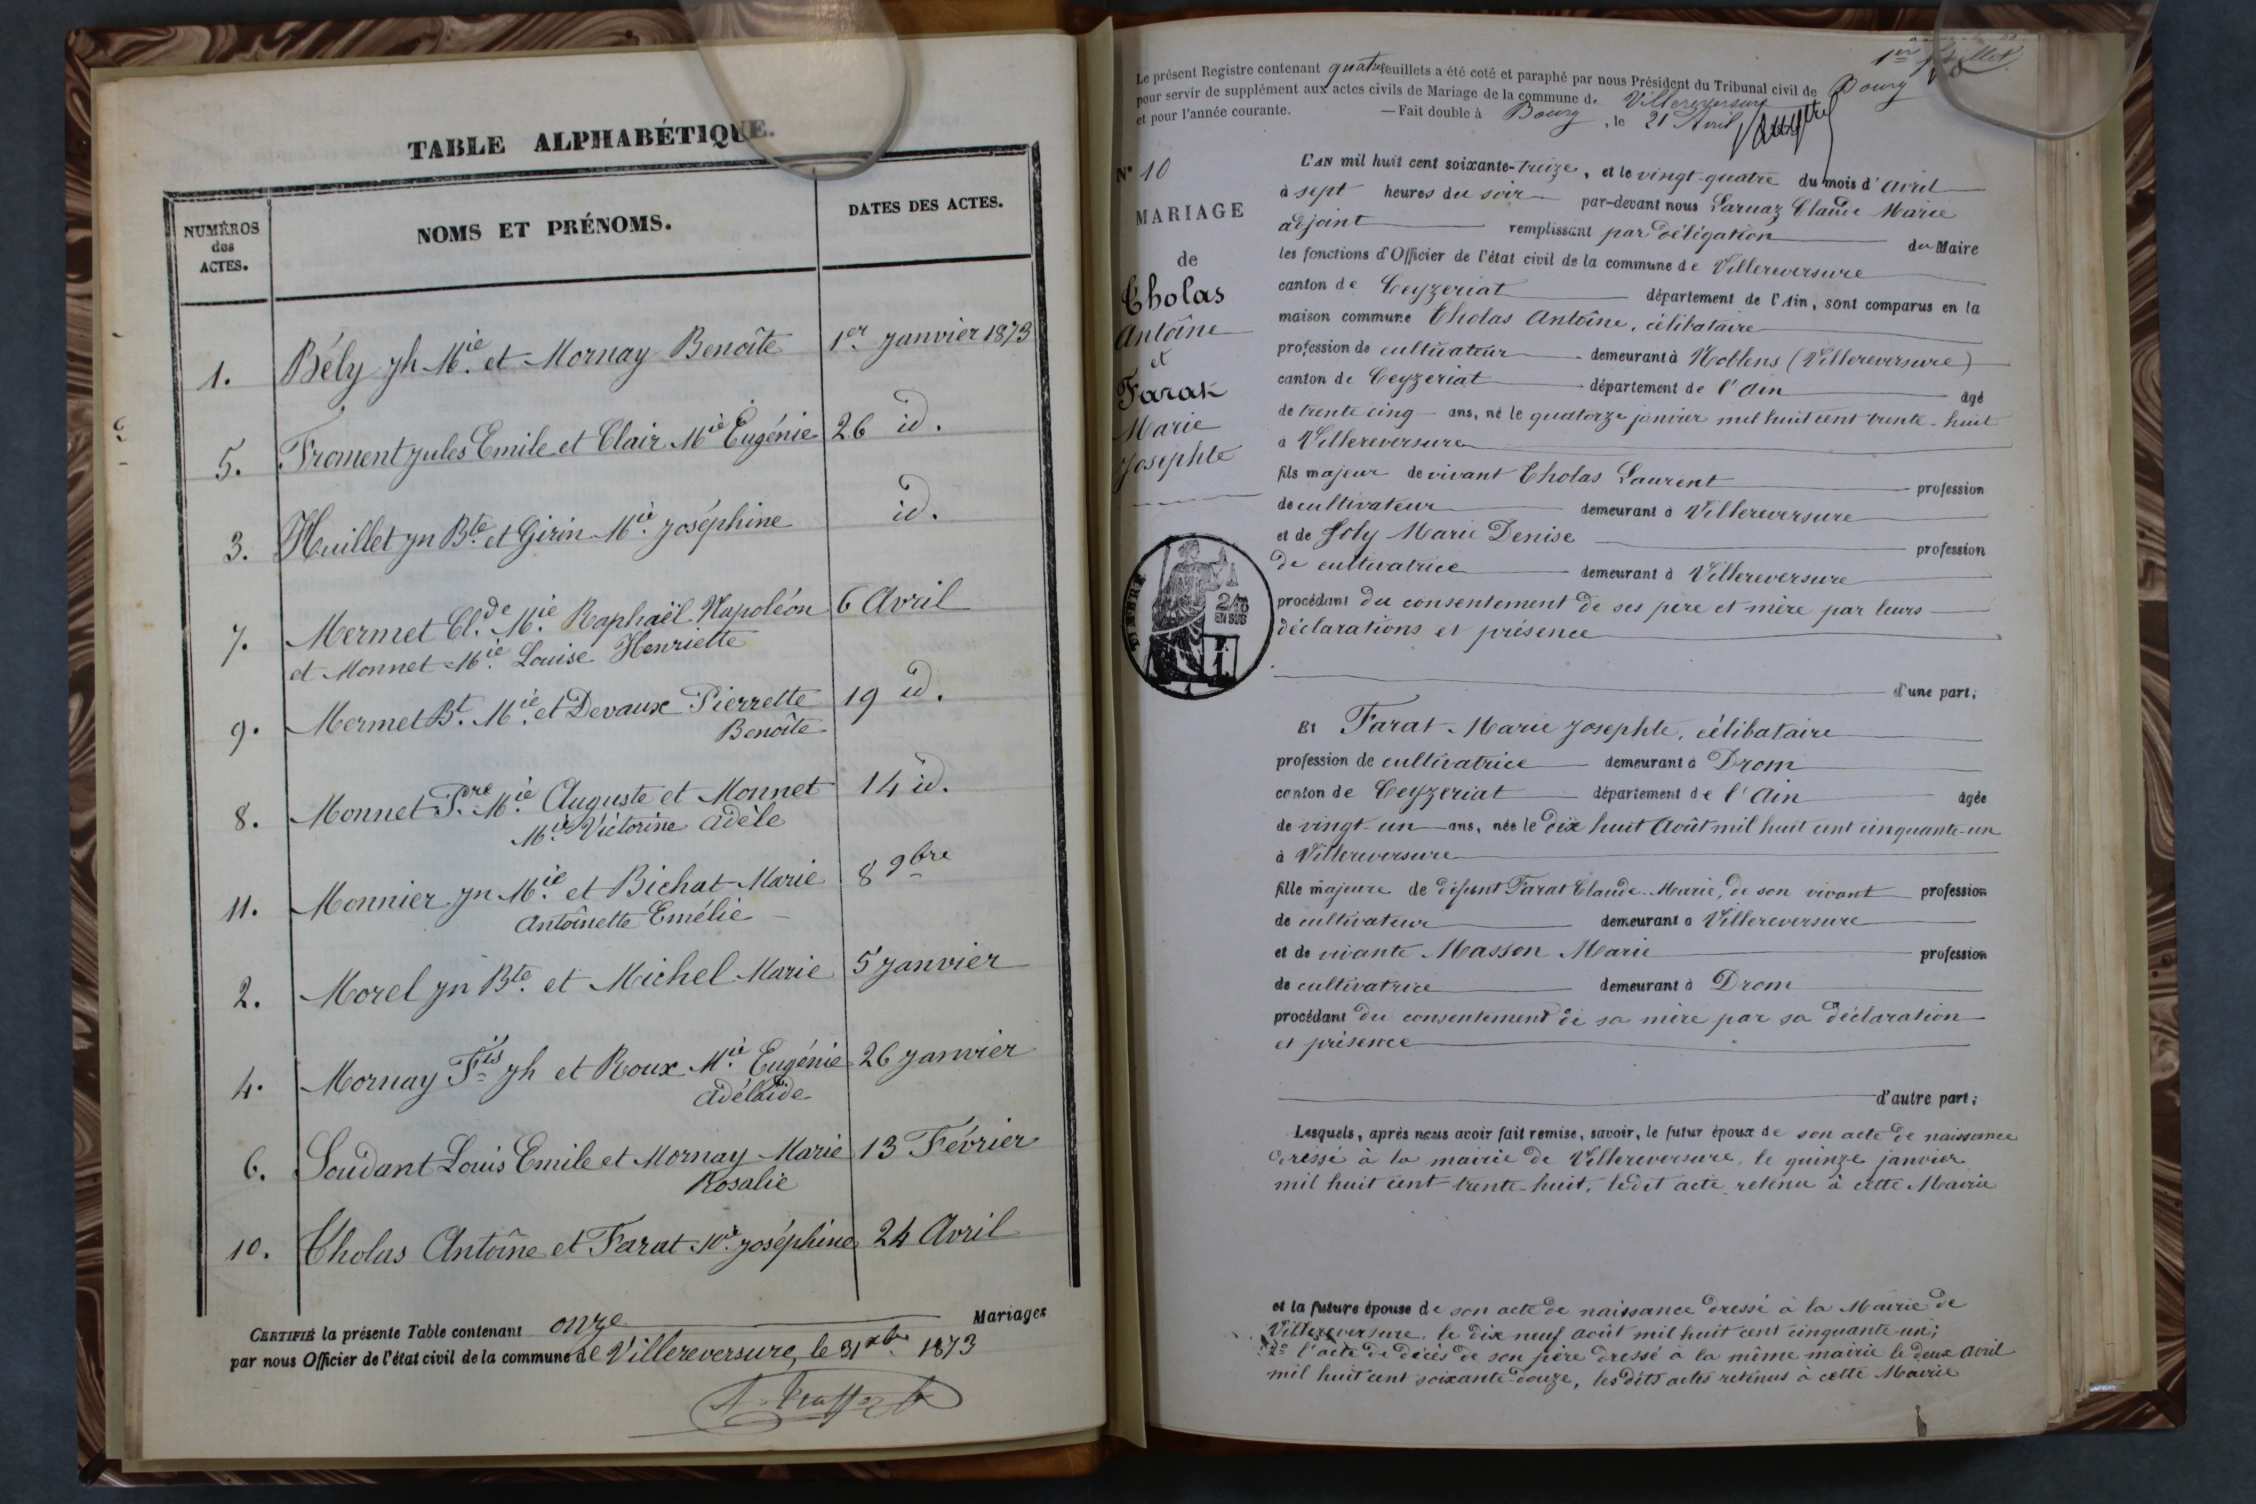 TABLE ALPHABÉTIQUE.
NUMÉROS
des
ACTES.
NOMS ET PRÉNOMS.
DATES DES ACTES.
1. Bély Jh Mie et Mornay Benoîte 1er Janvier 1873
5. Froment Jules Emile et Clair Mie Eugénie 26 id.
3. Huillet Jn Bte et Girin Mie Joséphine id.
7. Mermet Cl.de Mie Raphaël Napoléon 6 Avril
et Monnet Mie Louise Henriette
9. Mermet Bt. Mie et Devaux Pierrette 19 id.
Benoîte
8. Monnet Pre Mie Auguste et Monnet 14 id.
Mie Victorine Adèle
11. Monnier Jn Mie et Bichat Marie 8 9bre
Antoînette Emélie
2. Morel Jn Bte et Michel Marie 5 Janvier
4. Mornay Fis Jh et Roux Mie Eugénie 26 Janvier
Adélaïde
6. Soudant Louis Emile et Mornay Marie 13 Février
Rosalie
10. Tholas Antoîne et Farat Mie Joséphine 24 Avril
CERTIFIÉ la présente Table contenant onze Mariages
par nous Officier de l'état civil de la commune de Villereversure, le 31 xbre 1873
1er feuillet
Le présent Registre contenant quatre feuillets a été coté et paraphé par nous Président du Tribunal civil de Bourg
pour servir de supplément aux actes civils de Mariage de la commune de Villereversure
et pour l'année courante. —Fait double à Bourg, le 21 Avril
N° 10
MARIAGE
de
Tholas
Antoîne
et
Farat
Marie
Josephte
TIMBRE
2/10
EN SUS
L'AN mil huit cent soixante-treize, et le vingt-quatre du mois d'avril
à sept heures du soir par-devant nous Larnaz Claude Marie
adjoint remplissant par délégation du Maire
les fonctions d'Officier de l'état civil de la commune de Villereversure
canton de Ceyzeriat département de l'Ain, sont comparus en la
maison commune Tholas Antoîne, célibataire
profession de cultivateur demeurant à Noblens (Villereversure)
canton de Ceyzeriat département de l'Ain âgé
de trente cinq ans, né le quatorze janvier mil huit cent trente-huit
à Villereversure
fils majeur de vivant Tholas Laurent profession
de cultivateur demeurant à Villereversure
et de Joly Marie Denise profession
de cultivatrice demeurant à Villereversure
procédant du consentement de ses père et mère par leurs
déclarations et présence
d'une part;
Et Farat Marie Josephte, célibataire
profession de cultivatrice demeurant à Drom
canton de Ceyzeriat département de l'Ain âgée
de vingt-un ans, née le dix huit Août mil huit cent cinquante-un
à Villereversure
fille majeure de défunt Farat Claude-Marie, de son vivant profession
de cultivateur demeurant à Villereversure
et de vivante Masson Marie profession
de cultivatrice demeurant à Drom
procédant du consentement de sa mère par sa déclaration
et présence
d'autre part;
Lesquels, après nous avoir fait remise, savoir, le futur époux de son acte de naissance
dressé à la mairie de Villereversure, le quinze janvier
mil huit cent trente-huit, ledit acte retenu à cette Mairie
et la future épouse de son acte de naissance dressé à la Mairie de
Villereversure, le dix neuf août mil huit cent cinquante-un;
2° l'acte de décès de son père dressé à la même mairie le deux avril
mil huit cent soixante-douze, lesdits actes retenus à cette Mairie